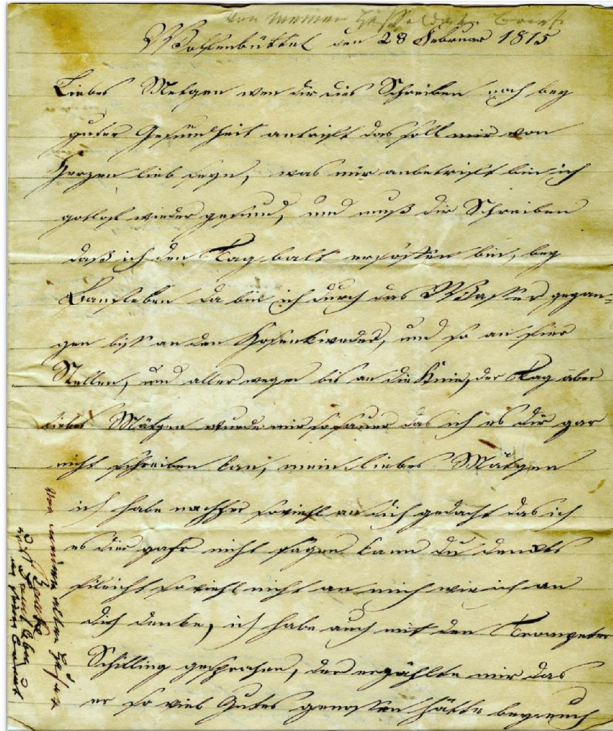 Wolfenbüttel den 28 Februar 1815
Liebes Metgen wen dir dies Schreiben noch bey
guter Gesundheit antrifft das soll mir von
Herzen lieb seyn, was mir anbetrifft bin ich
gotlob wieder gesund, und muß dir Schreiben
daß ich den Tag balt ersoffen bin, bey
da bin ich durch das Wasser gegan-
gen biss an den und so an vier
Stellen, und aller wegen bis an die Knie, der Tag aber
liebes Mätgen wurde mir so sauer das ich es dir gar
nicht schreiben kan, mein liebes Mätgen
ich habe nachher soviehl an dich gedacht das ich
es dir gahr nicht sagen kann du denckts
vileicht soviehl nicht an mich wie ich an
dich denke, ich habe auch mit den Trompeter
Schilling gesprochen, der erzählte mir das
er so viel Gutes genossen hätte bey euch